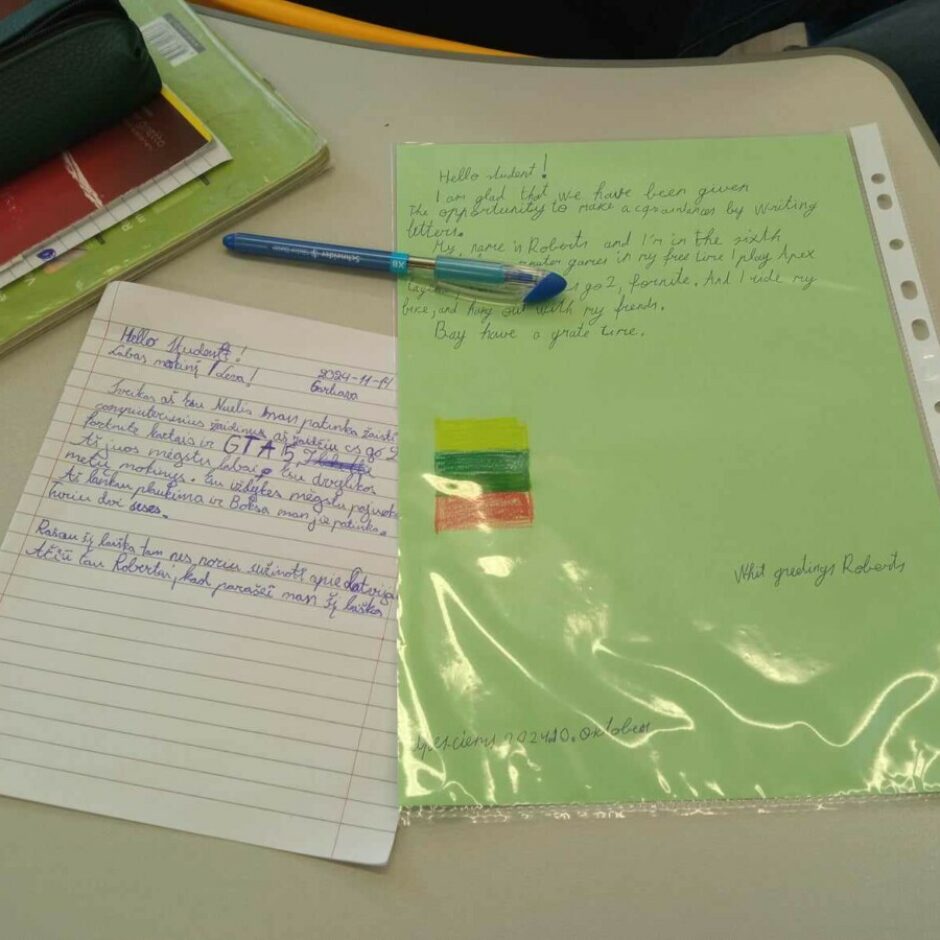 Hello student!
Labas mokiny / Leva!
2024-11-14
Garliava
Sveikas aš esu Nustis man patinka žaisti
compiuterinius žaidimus aš žaidžiu cs go 2
fortnite kartais ir GTA 5.
Aš juos mėgstu labai, Esu dvylikos
metų mokinys. Esu mėgstu
Aš lankau plaukima ir Boksa man jie patinka.
Turiu dvi seses.
Rašau šį laiška tau nes noriu sužinoti apie Latvija
Ačiū tau Robertai, kad parašei man šį laiška
Schneider
XB
Hello student!
I am glad that we have been given
the opportunity to make acquaintances by writing
letters.
My name is Roberts and I'm in the sixth
games in my free time I play Apex
go 2, fornite. And I ride my
bike, and hang out with my friends.
Bay have a grate time.
Whit greetings Roberts
2024.10. Oktober